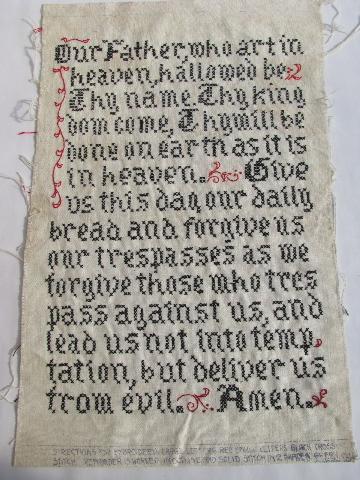 Our Father, who art in
heaven, hallowed be
Thy name. Thy king
dom come, Thy will be
done on earth as it is
in heaven. Give
us this day our daily
bread and forgive us
our trespasses as we
forgive those who tres
pass against us, and
lead us not into temp
tation, but deliver us
from evil. Amen.
DIRECTIONS FOR EMBROIDERY LARGE LETTERS RED BLACK CROSS
STITCH REMAINDER IS WORKED IN OUTLINE AND SOLID STITCH IN 2 SHADES